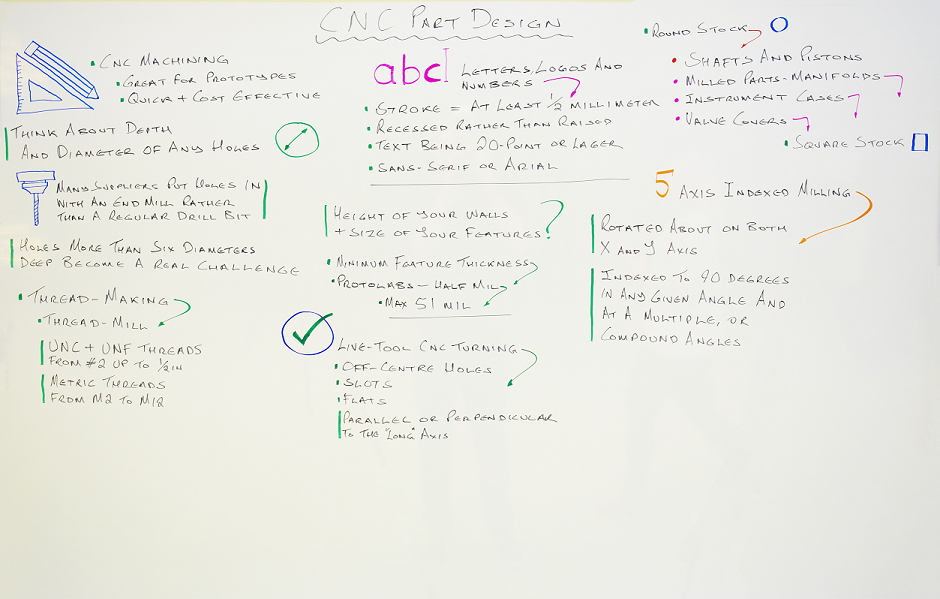 CNC PART DESIGN
• CNC MACHINING
• GREAT FOR PROTOTYPES
• QUICK + COST EFFECTIVE
THINK ABOUT DEPTH
AND DIAMETER OF ANY HOLES
MANY SUPPLIERS PUT HOLES IN
WITH AN END MILL RATHER
THAN A REGULAR DRILL BIT
HOLES MORE THAN SIX DIAMETERS
DEEP BECOME A REAL CHALLENGE
• THREAD-MAKING
• THREAD-MILL
UNC + UNF THREADS
FROM #2 UP TO 1/2 IN
METRIC THREADS
FROM M2 TO M12
abc LETTERS, LOGOS AND
NUMBERS
• STROKE = AT LEAST 1/2 MILLIMETER
• RECESSED RATHER THAN RAISED
• TEXT BEING 20-POINT OR LAGER
• SANS-SERIF OR ARIAL
HEIGHT OF YOUR WALLS
+ SIZE OF YOUR FEATURES?
• MINIMUM FEATURE THICKNESS
• PROTOLABS - HALF MIL
• MAX 51 MIL
LIVE-TOOL CNC TURNING
• OFF-CENTRE HOLES
• SLOTS
• FLATS
PARALLEL OR PERPENDICULAR
TO THE "LONG" AXIS
• ROUND STOCK
• SHAFTS AND PISTONS
• MILLED PARTS - MANIFOLDS
• INSTRUMENT CASES
• VALVE COVERS
• SQUARE STOCK
5 AXIS INDEXED MILLING
ROTATED ABOUT ON BOTH
X AND Y AXIS
INDEXED TO 90 DEGREES
IN ANY GIVEN ANGLE AND
AT A MULTIPLE, OR
COMPOUND ANGLES